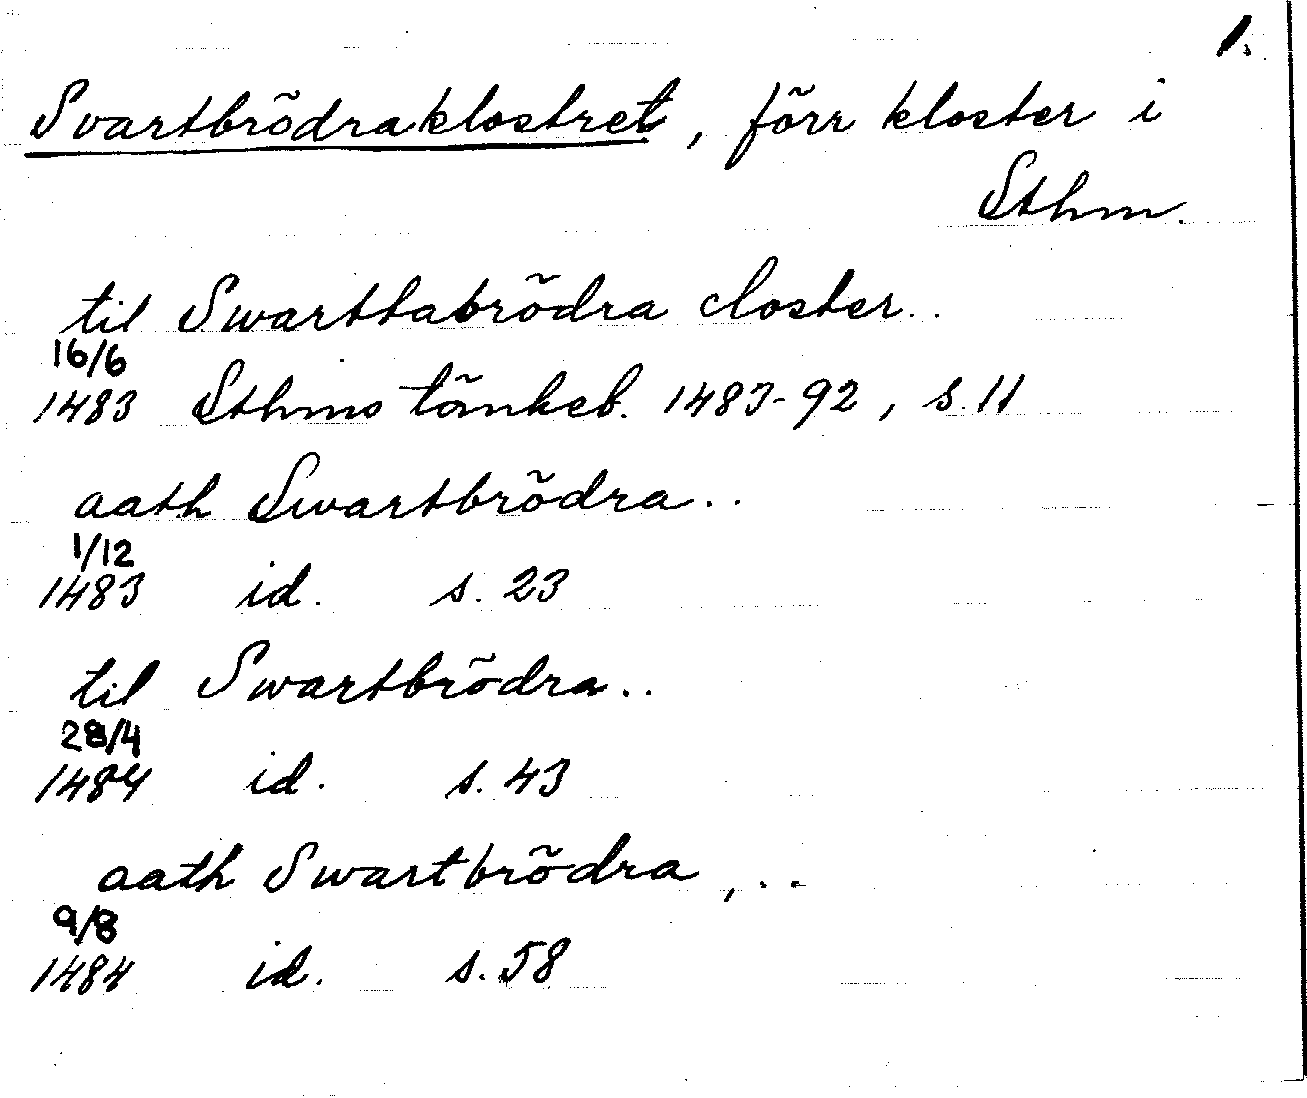 1.
Svartbrödraklostret, förr kloster i
Sthm.
til Swarttabrödra closter..
16/6
1483 Sthms tänkeb. 1483-92, s. 11
aath Swartbrödra..
1/12
1483 id. s. 23
til Swartbrödra..
28/4
1484 id. s. 43
aath Swartbrödra, ..
9/8
1484 id. s. 58